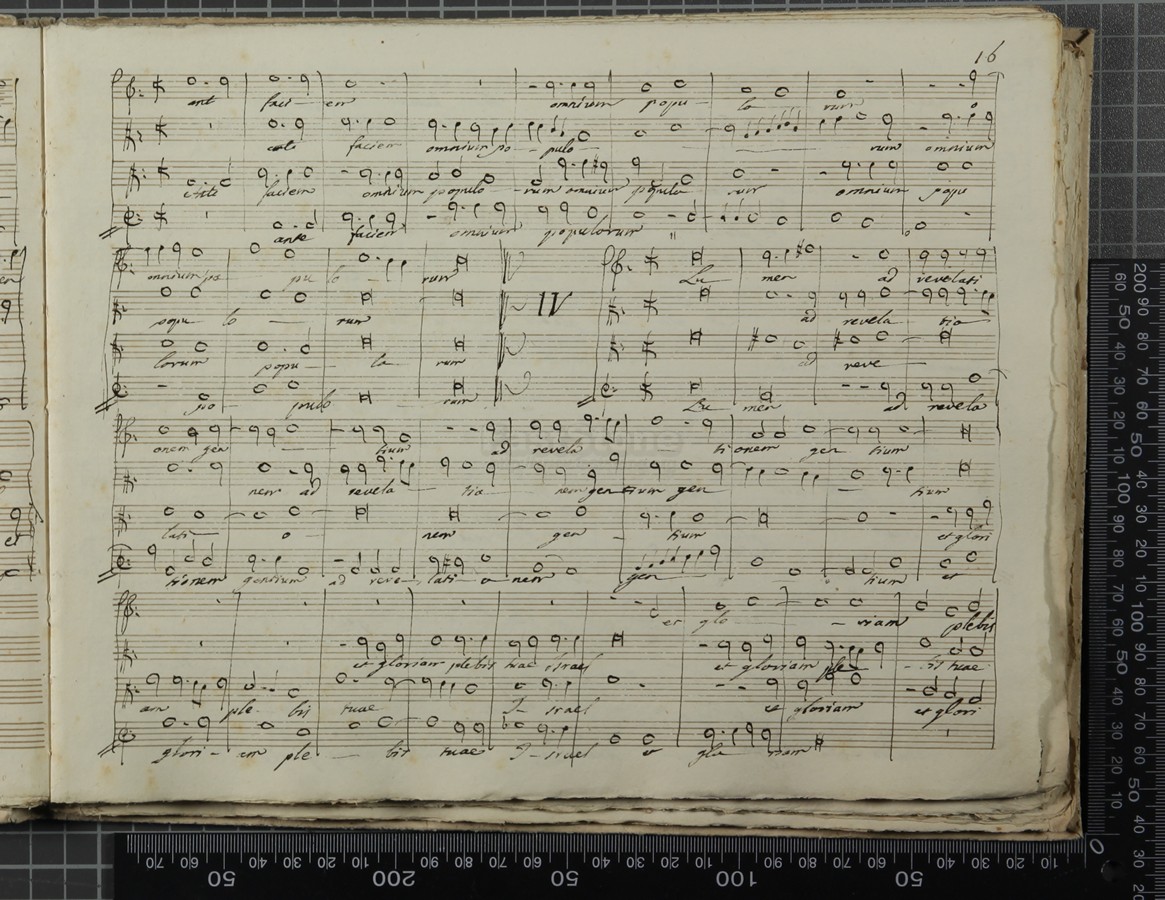 16
ant faci - em omnium popu - lo - rum
faciem omnium po - pulo - rum omnium
faciem omnium populo - rum omnium populo rum omnium popu
ante faciem omnium populorum
omnium po pu lo rum Lu men ad revelati
popu lo - rum IV ad revela tio
lorum popu - lo rum ad reve -
po - pulo - rum Lu men ad revela
onem gen - tium ad revela tionem gen tium
nem ad revela - tio nem gentium gen - tium
lati - o - nem gen - tium et glori
tionem gentium ad reve - lati - o nem gen tium et
et glo - riam plebis
et gloriam plebis tuae israel et gloriam ple - bis tuae
am ple - bis tuae I - srael et gloriam et glori
glori - am ple - bis tuae I - srael glo riam